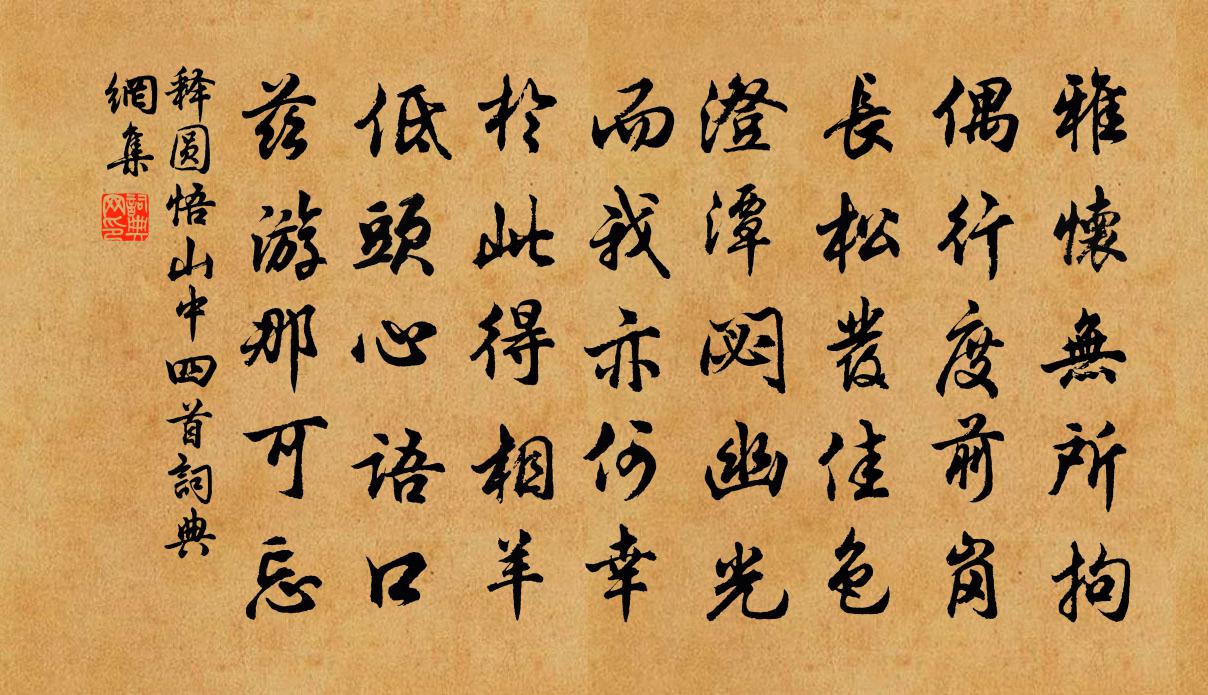 雅懷無所拘
偶行度前崗
長松發佳色
澄潭閟幽光
而我亦何幸
於此得相羊
低頭心語口
茲游那可忘
释圓悟山中四首詞典
網集
詞典
网印